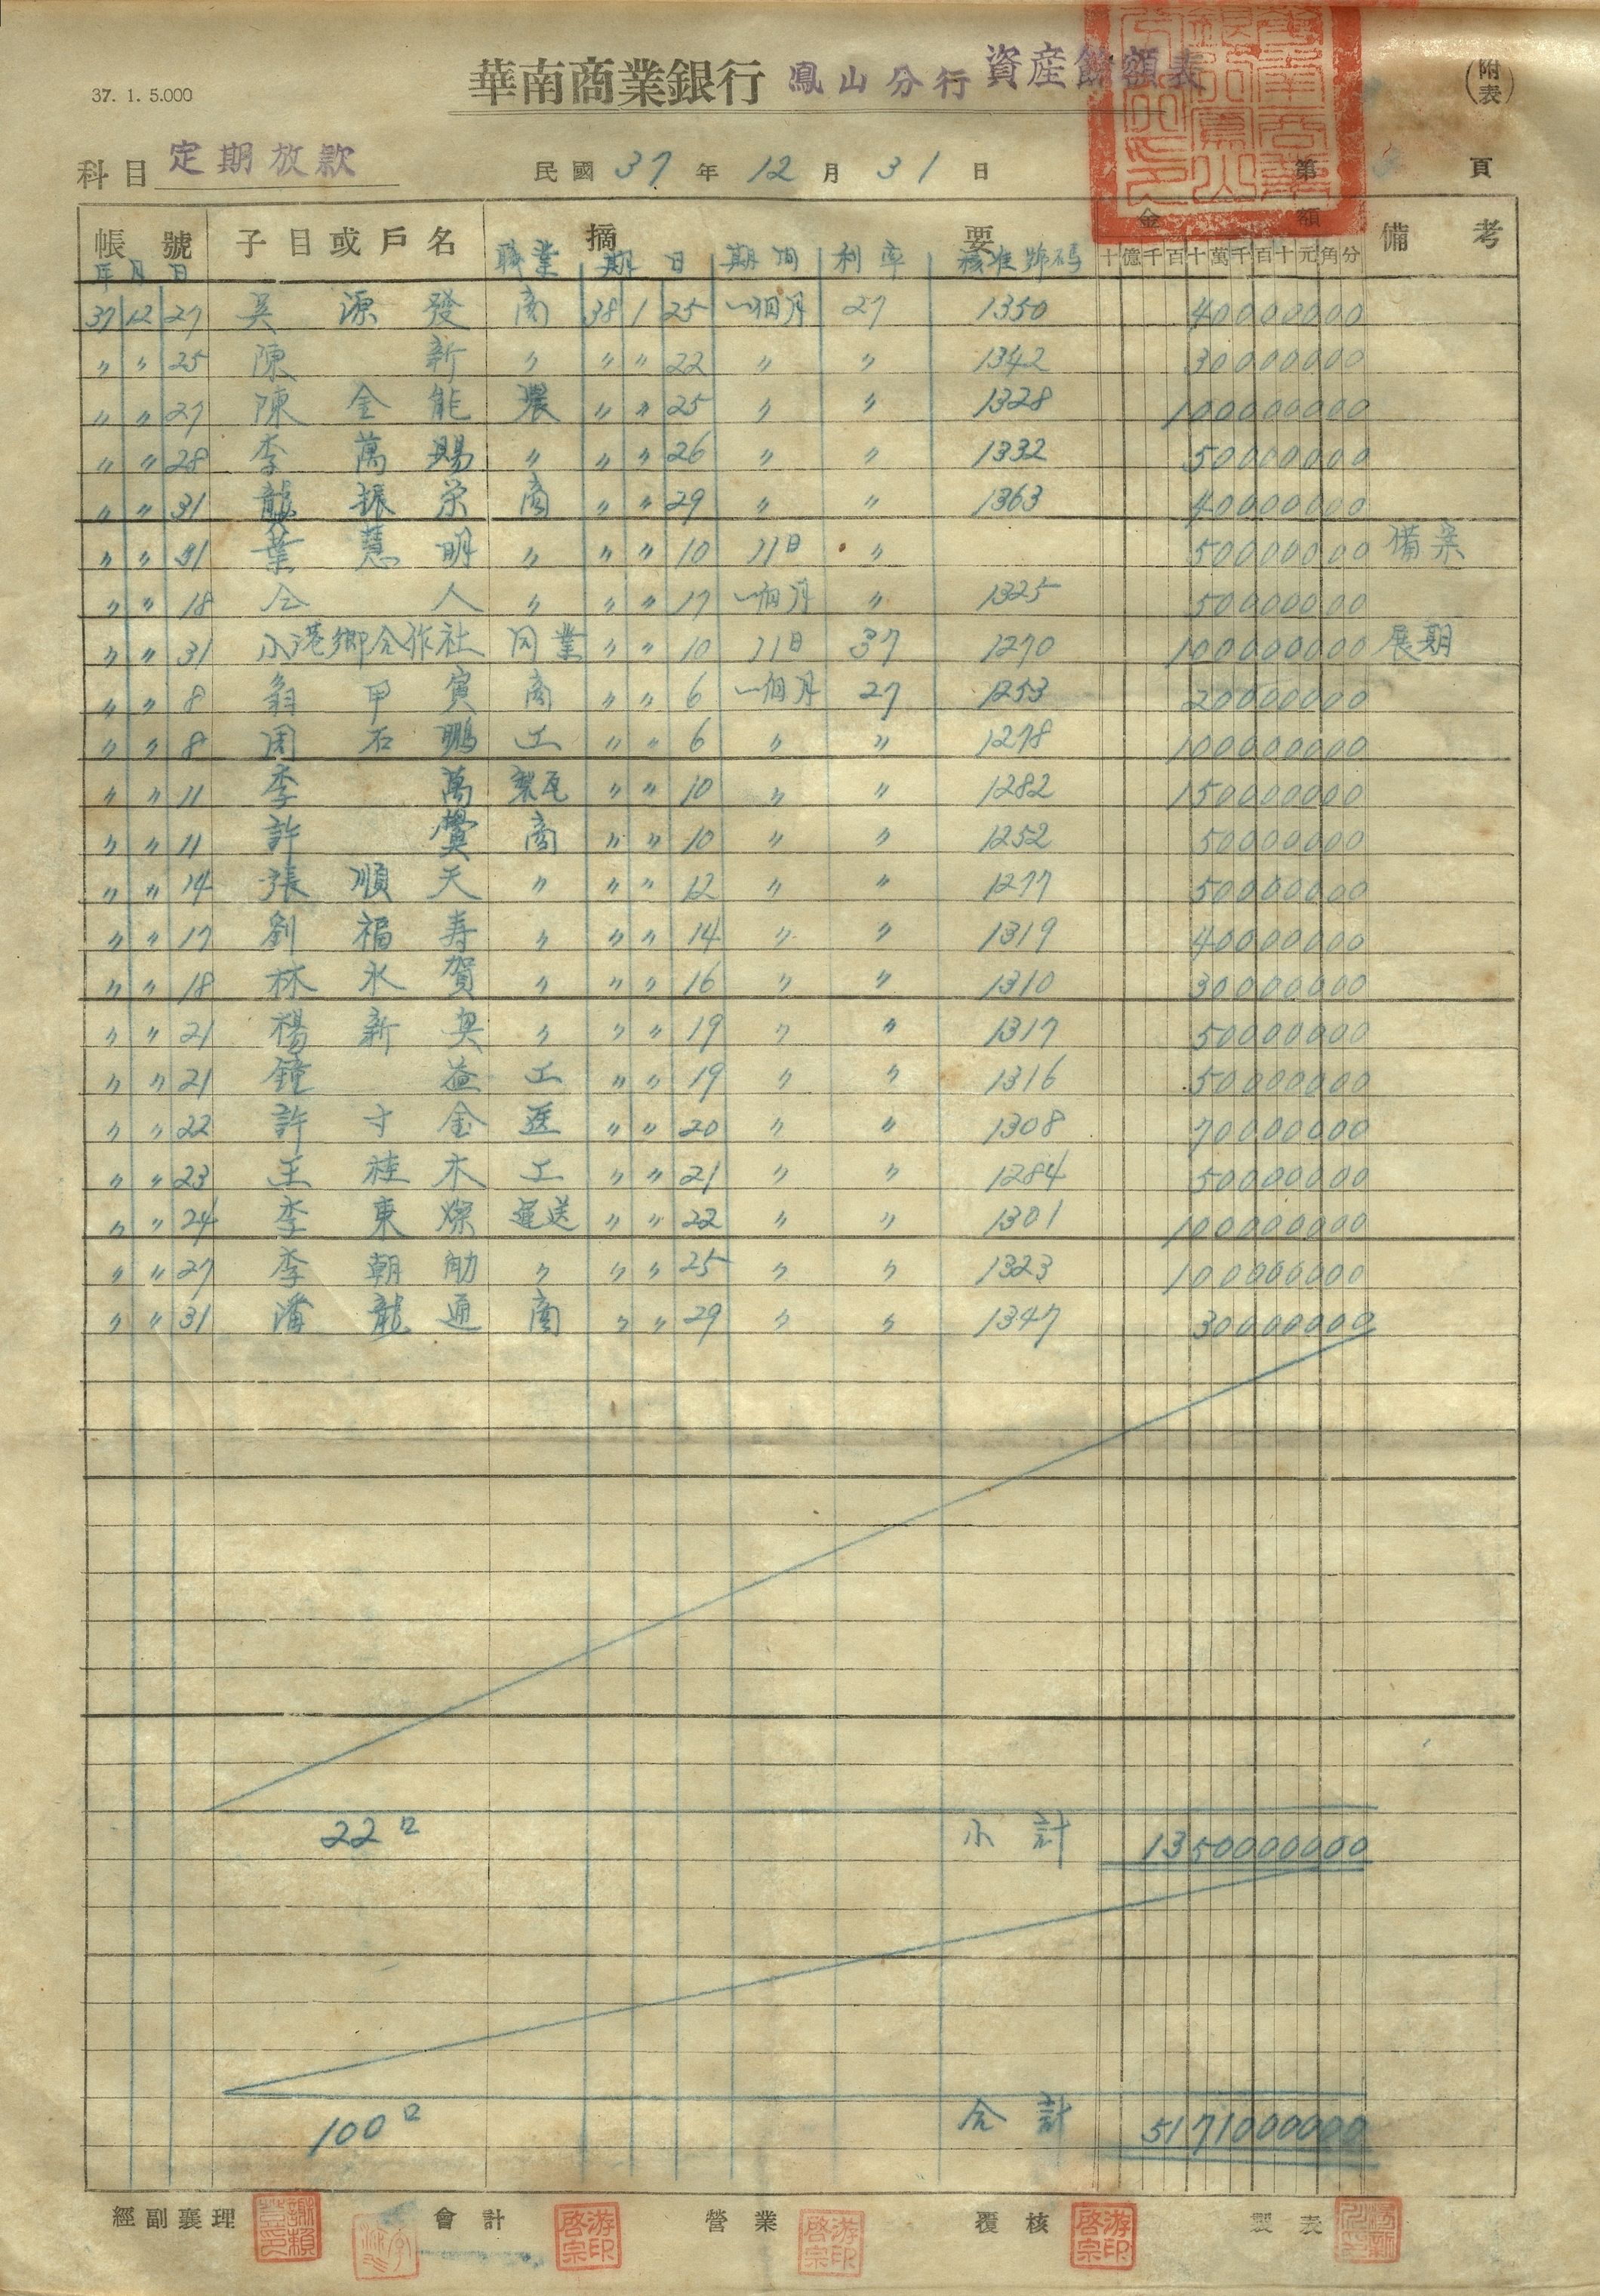 37. 1. 5.000
華南商業銀行 鳳山分行 資産餘額表
(附表)
科目 定期放款 民國 37 年 12 月 31 日 第 頁
帳號 子目或戶名 摘要 金額 備考
年 月 日 職業 期日 期間 利率 核准號碼 十億千百十萬千百十元角分
37 12 27 吳源發 商 38 1 25 一個月 27 1350 40000000
〃 〃 25 陳新 〃 〃 〃 22 〃 〃 1342 30000000
〃 〃 27 陳金能 農 〃 〃 25 〃 〃 1328 100000000
〃 〃 28 李萬賜 〃 〃 〃 26 〃 〃 1332 50000000
〃 〃 31 龍振栄 商 〃 〃 29 〃 〃 1363 40000000
〃 〃 31 葉慧明 〃 〃 〃 10 11日 〃 50000000 備案
〃 〃 18 仝人 〃 〃 〃 17 一個月 〃 1325 50000000
〃 〃 31 小港鄉合作社 同業 〃 〃 10 11日 37 1270 100000000 展期
〃 〃 8 翁甲寅 商 〃 〃 6 一個月 27 1253 20000000
〃 〃 8 周石鵬 工 〃 〃 6 〃 〃 1278 100000000
〃 〃 11 李萬 製瓦 〃 〃 10 〃 〃 1282 150000000
〃 〃 11 許 商 〃 〃 10 〃 〃 1252 50000000
〃 〃 14 張順天 〃 〃 〃 12 〃 〃 1277 50000000
〃 〃 17 劉福寿 〃 〃 〃 14 〃 〃 1319 40000000
〃 〃 18 林水賀 〃 〃 〃 16 〃 〃 1310 30000000
〃 〃 21 楊新 〃 〃 〃 19 〃 〃 1317 50000000
〃 〃 21 鐘益 工 〃 〃 19 〃 〃 1316 50000000
〃 〃 22 許寸金 〃 〃 20 〃 〃 1308 70000000
〃 〃 23 王桂木 工 〃 〃 21 〃 〃 1284 50000000
〃 〃 24 李東燦 運送 〃 〃 22 〃 〃 1301 100000000
〃 〃 27 李朝 〃 〃 〃 25 〃 〃 1323 100000000
〃 〃 31 潘龍通 商 〃 〃 29 〃 〃 1347 30000000
22口 小計 1350000000
100口 合計 5171000000
經副襄理 會計 游啓宗印 營業 游啓宗印 覆核 游啓宗印 製表